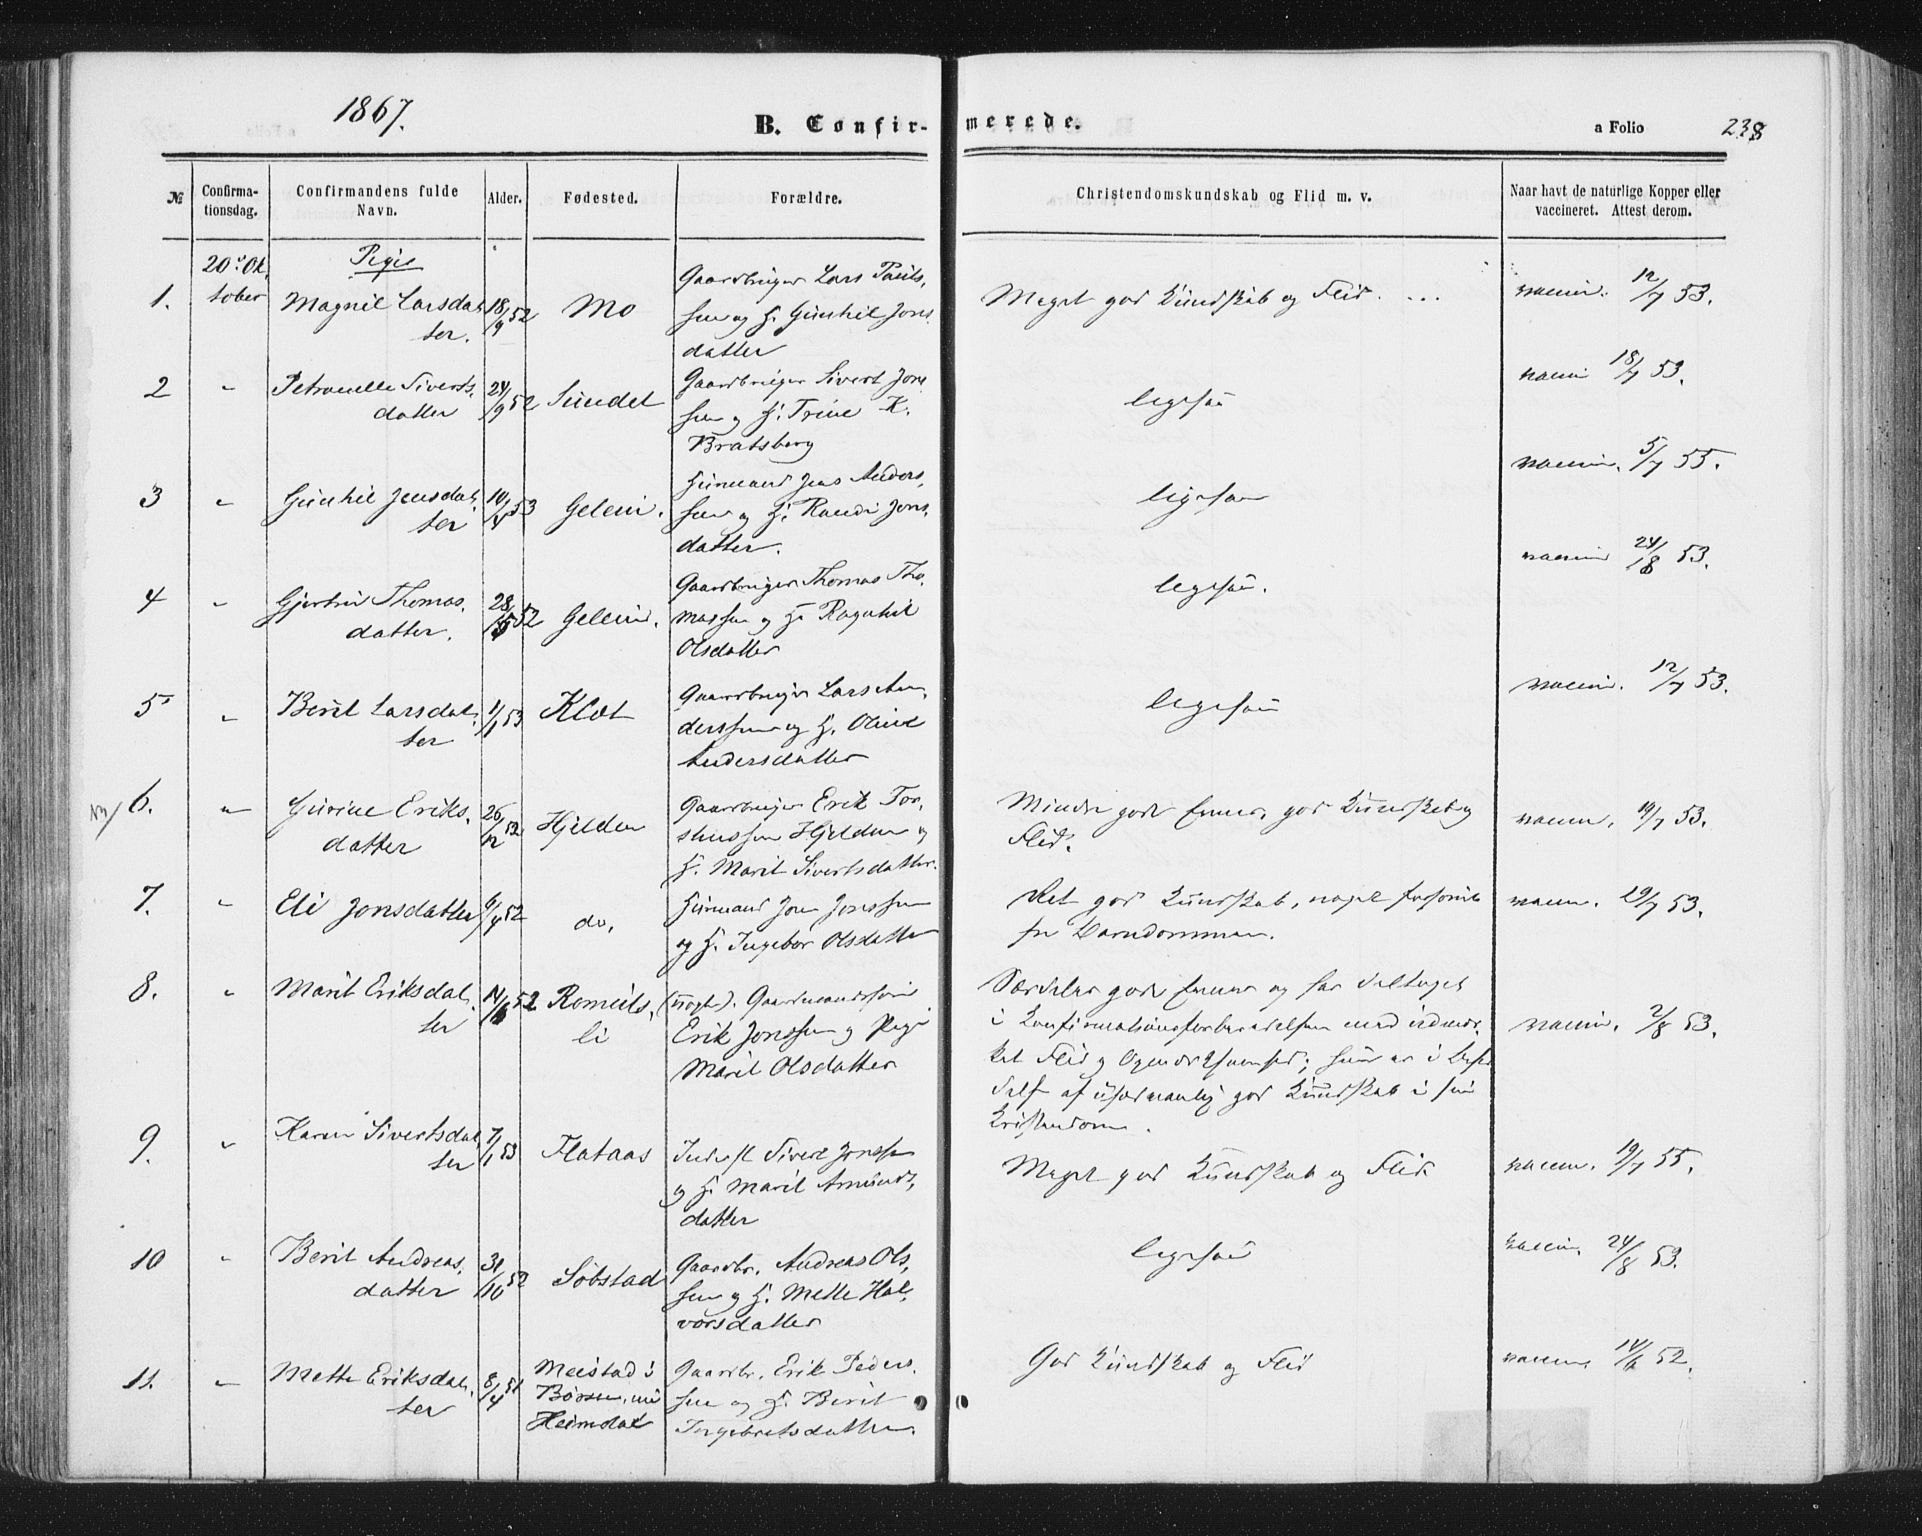 1867.
B. Confir-
merede.
a Folio
238
№
Confirma-
tionsdag.
Confirmandens fulde
Navn.
Alder.
Fødested.
Forældre.
Christendomskundskab og Flid m. v.
Naar havt de naturlige Kopper eller
vaccineret. Attest derom.
20de Ok
tober
Piger
1.
Magnil Larsdat
ter.
18/9 52
Mo
Gaardbruger Lars Pauls,
sen og H. Gunhil Jons
datter
Meget god Kundskab og Flid.
vaccin. 12/7 53.
2
"
Petronelle Siverts,
datter
24/9 52
Sundet
Gaardbruger Sivert Jon
sen og H. Trine K.
Bratsberg
ligesaa
vaccin 18/7 53.
3
"
Gunhil Jensdat,
ter
10/4 53
Gelein.
Huusmand Jens Anders,
sen og H. Randi Jons,
datter.
ligesaa
vaccin. 5/7 55.
4
"
Gjertru Thomas,
datter.
28/5 52
Gelein.
Gaardbruger Thomas Tho,
massen og H. Ragnhil
Olsdatter
ligesaa.
vaccin 24/8 53.
5
"
Berit Larsdat,
ter
1/1 53
Klæt
Gaardbruger Lars An,
derssen og H. Oline
Andersdatter
ligesaa
vaccin. 12/7 53.
6.
"
Gurine Eriks,
datter
26/12 52
Hjelden
Gaardbruger Erik Tor,
stenssen Hjelden og
H. Marit Sivertsdatter.
Mindre gode Evner, god Kundskab og
Flid.
vaccin. 19/7 53.
7.
"
Eli Jonsdatter
do.
Huusmand Jon Jonssen
og H. Ingebor Olsdatter
Ret god Kundskab, noget forsømt
fra Barndommen.
vaccin. 29/7 53.
8.
"
Marit Eriksdat,
ter
Romuls,
li
(uægte). Gaardmandssøn
Erik Jonssen og Pige
Marit Olsdatter
Særdeles gode Evner og har deltaget
i Konfirmationsforberedelsen med udmær,
ket Flid og Opmærksomhed; hun er i Besid
delse af usædvanlig god Kundskab i sin
Kristendom.
vaccin. 2/8 53.
9.
"
Karen Sivertsdat
ter
7/1 53
Flataas
Inderst Sivert Jonssen
og H. Marit Amunds,
datter
Meget god Kundskab og Flid
vaccin. 19/7 55.
10
"
Berit Andreas,
datter
31/10 52
Søbstad
Gaardbr. Andreas Ols,
sen og H. Mette Hal,
vorsdatter
ligesaa
vaccin. 24/8 53.
11.
"
Mette Eriksdat,
ter
8/4 51
Meistad i
Børsen, nu
Heimdal
Gaardbr. Erik Peders,
sen og H. Berit
Ingebretsdatter.
God Kundskab og Flid
vaccin 14/6 52.